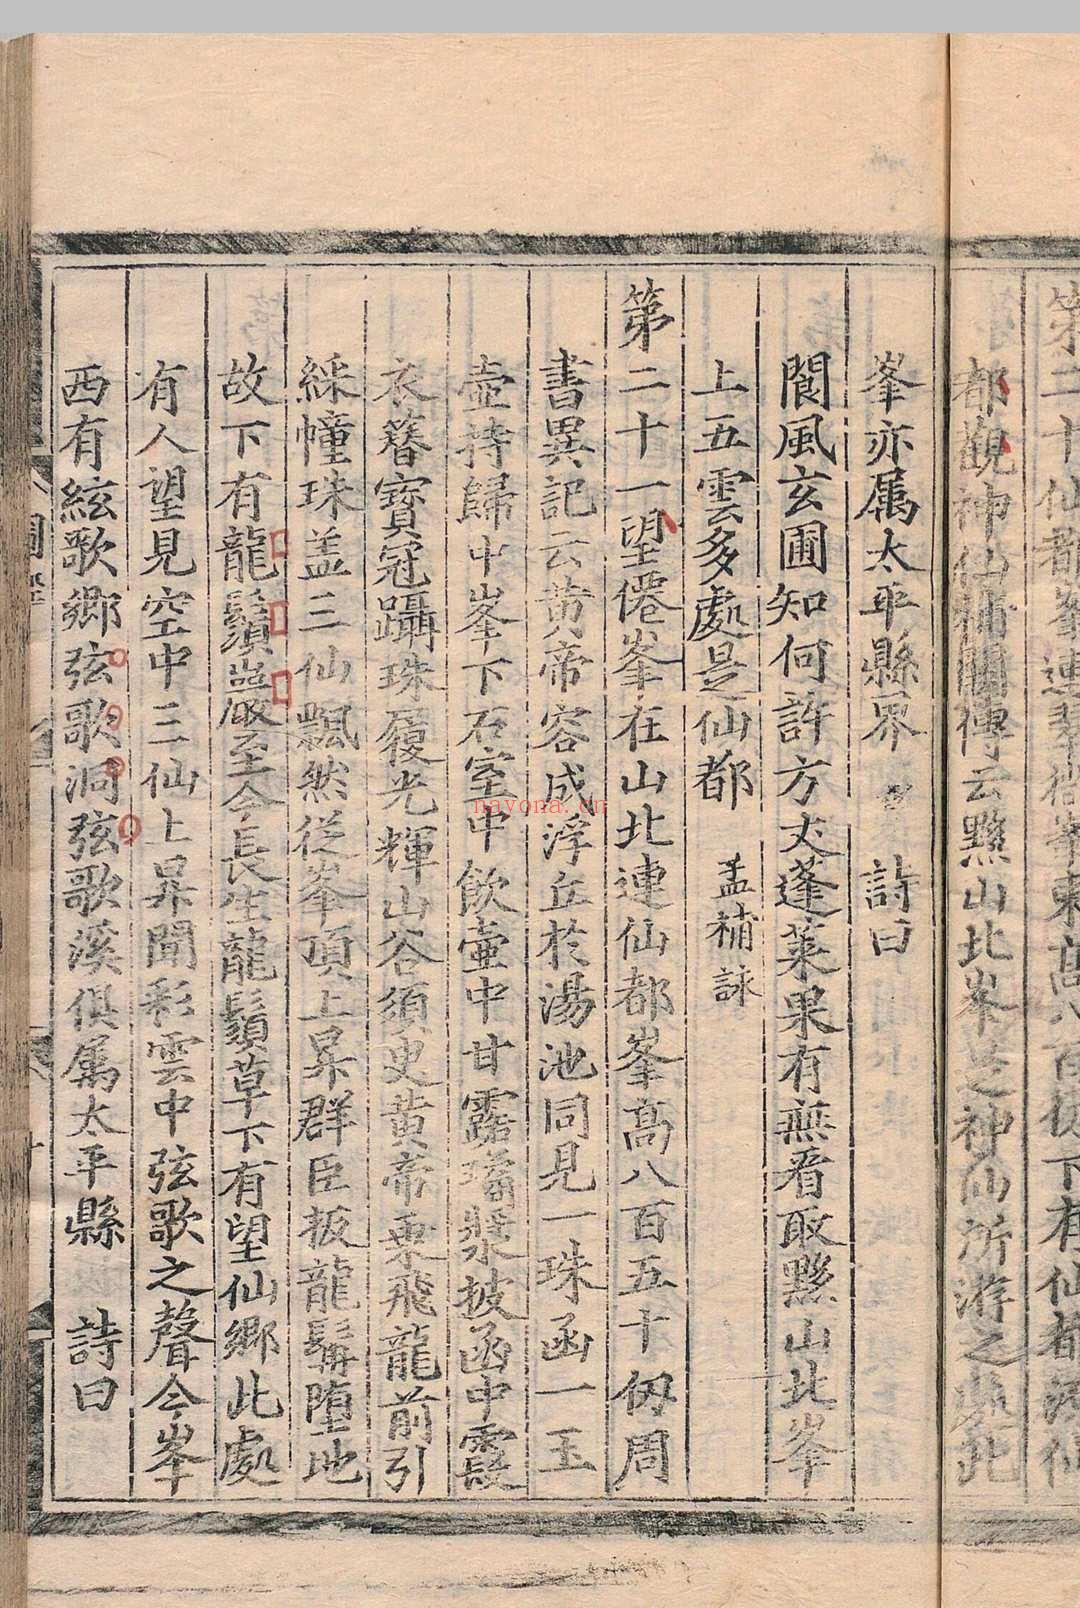 第二十仙都峯連翠微峯東高八百仭下有仙都源仙
都觀神仙補闕傳云黟山北峯是神仙所游之處此
峯亦属太平縣界 詩曰
閬風玄圃知何許方丈蓬萊果有無看取黟山北峯
上五雲多處是仙都 孟補詠
第二十一望僊峯在山北連仙都峯高八百五十仭周
書異記云黄帝容成浮丘於湯池同見一珠函一玉
壺持歸中峯下石室中飲壷中甘露瓊漿披函中霞
衣簪寳冠躡珠履光輝山谷須史黄帝乗飛龍前引
綵幢珠盖三仙飄然從峯頂上昇群臣扳龍髯堕地
故下有龍鬚巖至今長生龍鬚草下有望仙郷此處
有人望見空中三仙上昇聞彩雲中弦歌之聲今峯
西有絃歌郷弦歌洞弦歌溪俱属太平縣 詩曰
nayona.cn